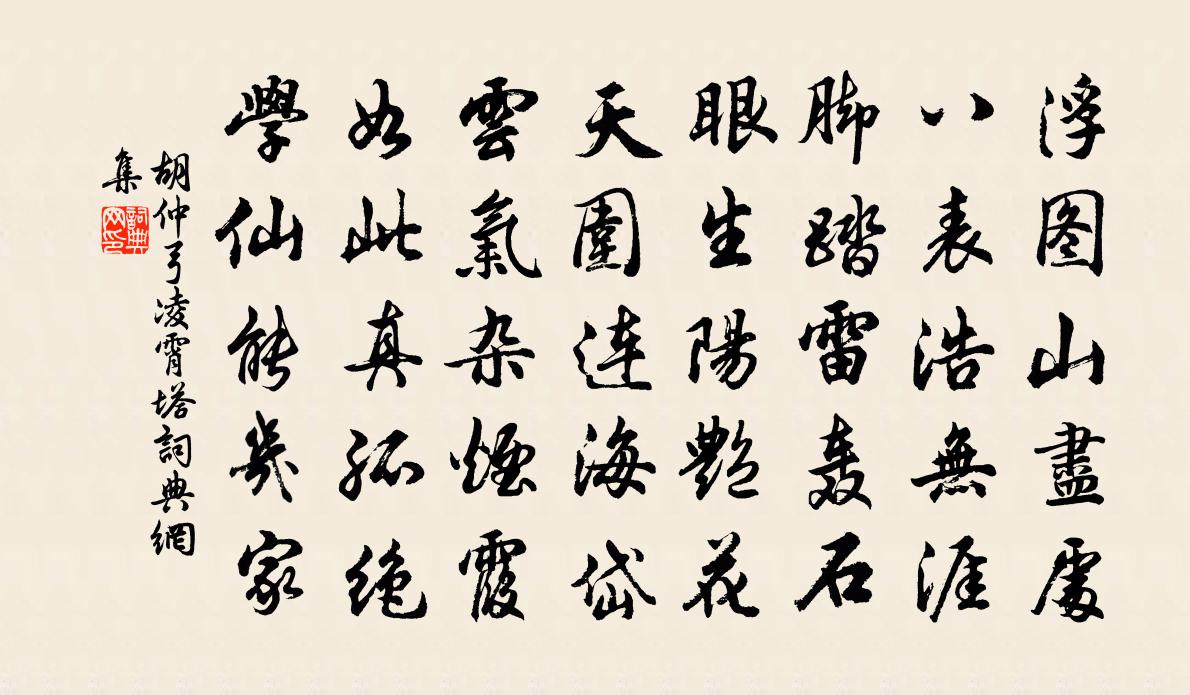 浮图山盡處
八表浩無涯
脚踏雷轰石
眼生陽艷花
天圍连海岱
雲氣杂煙霞
如此真孤绝
學仙能幾家
胡仲弓凌霄塔詞典網
集
詞典网印